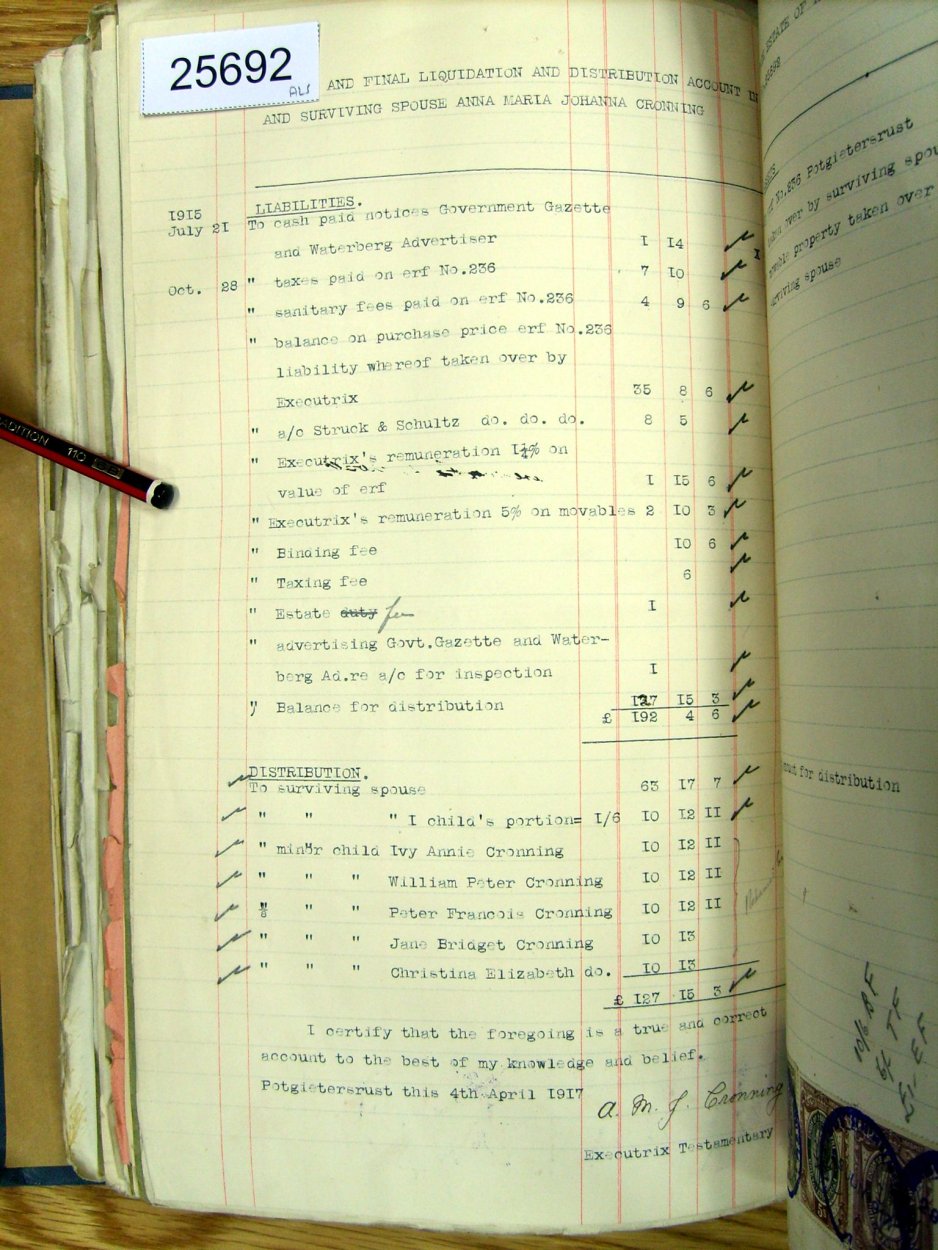 25692
ALS
AND FINAL LIQUIDATION AND DISTRIBUTION ACCOUNT IN
AND SURVIVING SPOUSE ANNA MARIA JOHANNA CRONNING
LIABILITIES.
1915
July 2I To cash paid notices Government Gazette
and Waterberg Advertiser I I4
Oct. 28 " taxes paid on erf No.236 7 IO
" sanitary fees paid on erf No.236 4 9 6
" balance on purchase price erf No.236
liability whereof taken over by
Executrix 35 8 6
" a/c Struck & Schultz do. do. do. 8 5
" Executrix's remuneration I¼% on
value of erf I I5 6
" Executrix's remuneration 5% on movables 2 IO 3
" Binding fee IO 6
" Taxing fee 6
" Estate duty fee I
" advertising Govt.Gazette and Water-
berg Ad.re a/c for inspection I
" Balance for distribution I27 I5 3
£ I92 4 6
DISTRIBUTION.
To surviving spouse 63 I7 7
" " " I child's portion= I/6 IO I2 II
" minor child Ivy Annie Cronning IO I2 II
" " " William Peter Cronning IO I2 II
" " " Peter Francois Cronning IO I2 II
" " " Jane Bridget Cronning IO I3
" " " Christina Elizabeth do. IO I3
£ I27 I5 3
I certify that the foregoing is a true and correct
account to the best of my knowledge and belief.
Potgietersrust this 4th April I9I7
A. M. J. Cronning
Executrix Testamentary
ESTATE OF
No.236 Potgietersrust
over by surviving spou
property taken over
surviving spouse
for distribution
10/6 BF
6/- TF
£1/- EF
TRADITION 110